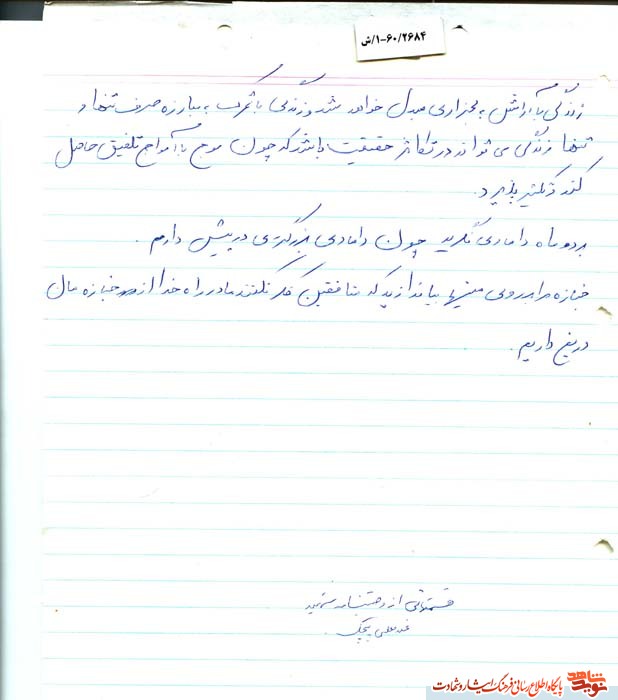 ۱/۶۰-۲۶۸۴/ش
زندگی با آرامش به لجنزاری مبدل خواهد شد و زندگی با تحرک به مبارزه صرف تنها و
تنها زندگی می تواند در تکاثر حقیقت باشد که چون موج با امواج تلفیق حاصل
کند و تکثیر پذیرد.
بر دو ماه دامادی نگرید چون دامادی بزرگتری در پیش دارم.
جنازه مرا بر روی مینها بیاندازید که منافقین فکر نکنند ما در راه خدا از جنازه مان
دریغ داریم.
قسمتهائی از وصیتنامه شهید
نوید شاهد
پایگاه اطلاع رسانی فرهنگ ایثار و شهادت